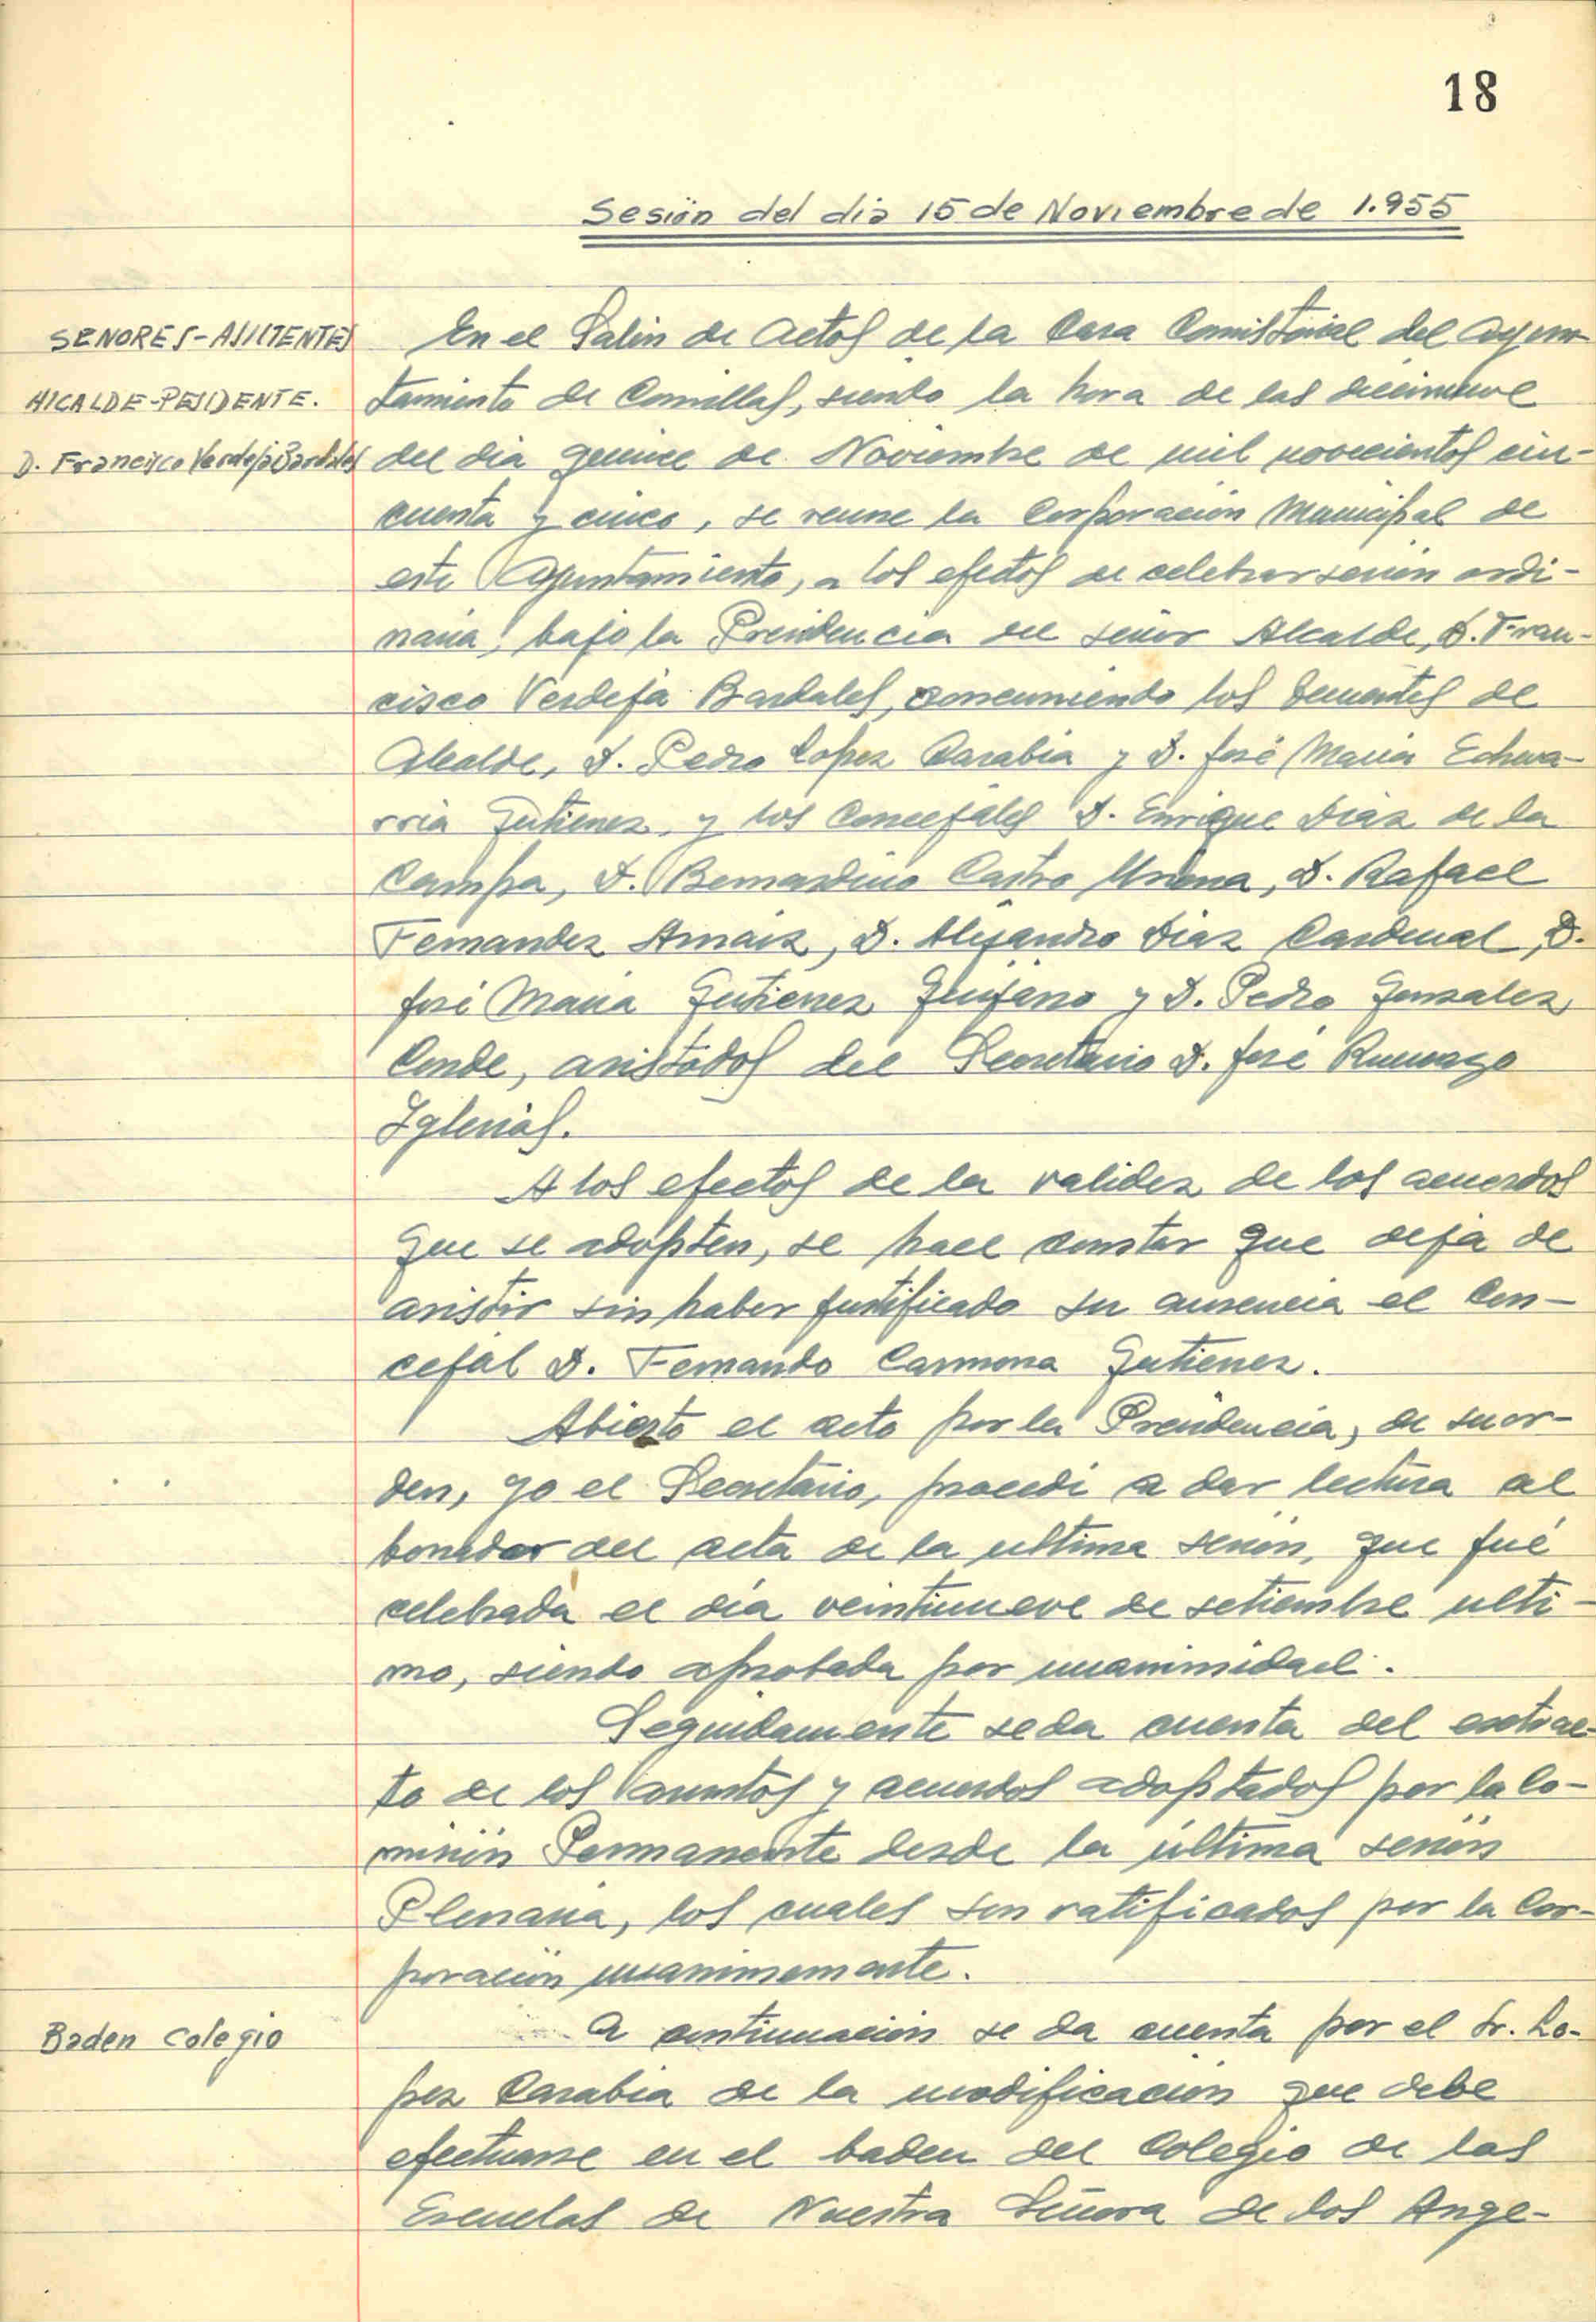 18
Sesión del dia 15 de Noviembre de 1.955
SEÑORES-ASISTENTES
ALCALDE-PESIDENTE.
D. Francisco Verdeja Bardales
En el Salón de Actos de la Casa Consistorial del Ayun-
tamiento de Comillas, siendo la hora de las diecinueve
del dia quince de Noviembre de mil novecientos cin-
cuenta y cinco, se reune la Corporación Municipal de
este Ayuntamiento, a los efectos de celebrar sesión ordi-
naria, bajo la Presidencia del señor Alcalde, D. Fran-
cisco Verdeja Bardales, concurriendo los Tenientes de
Alcalde, D. Pedro Lopez Carabia y D. José Maria Echeva-
rria Gutierrez, y los Concejales D. Enrique Diaz de la
Campa, D. Bernardino Castro, D. Rafael
Fernandez Arnaiz, D. Alejandro Diaz Cardenal, D.
José Maria Gutierrez Quijano y D. Pedro Gonzalez
Conde, asistidos del Secretario D. José Rumazo
Iglesias.
A los efectos de la validez de los acuerdos
que se adopten, se hace constar que deja de
asistir sin haber justificado su ausencia el Con-
cejal D. Fernando Carmona Gutierrez.
Abierto el acto por la Presidencia, de su or-
den, yo el Secretario, procedi a dar lectura al
borrador del acta de la ultima sesión, que fué
celebrada el día veintinueve de setiembre ulti-
mo, siendo aprobada por unanimidad.
Seguidamente se da cuenta del extrac-
to de los asuntos y acuerdos adoptados por la Co-
misión Permanente desde la última sesión
Plenaria, los cuales son ratificados por la Cor-
poración unanimemente.
Baden Colegio
A continuación se da cuenta por el Sr. Lo-
pez Carabia de la modificación que debe
efectuarse en el baden del Colegio de las
Escuelas de Nuestra Señora de los Ange-